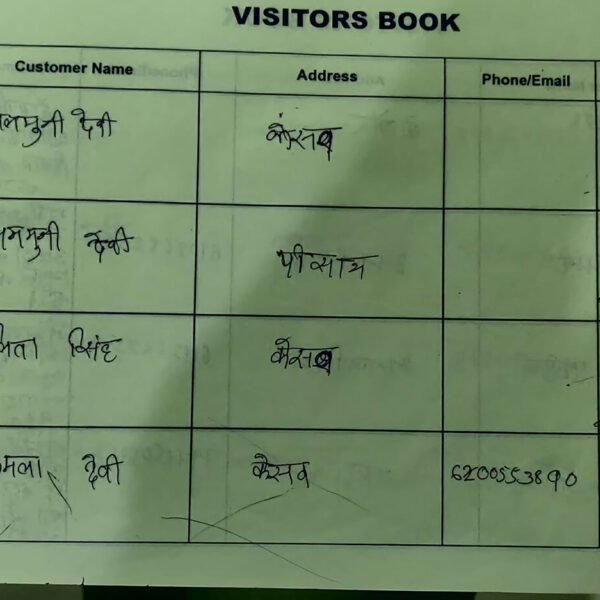 VISITORS BOOK
Customer Name Address Phone/Email
देवी कोसब
देवी पीसाय
सिंह कैसब
देवी कैसब 6200553890